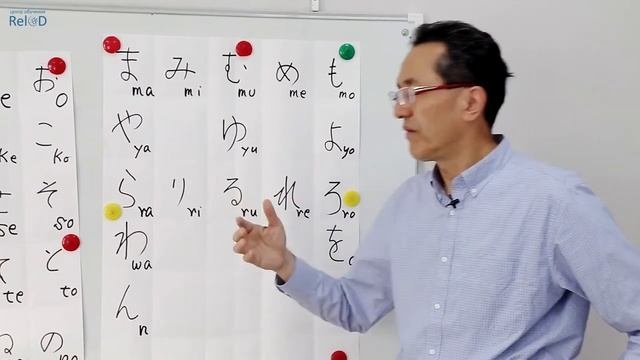 центр обучения
RelOD
お o ま ma み mi む mu め me も mo
こ ko や ya ゆ yu よ yo
そ so ら ra り ri る ru れ re ろ ro
と to わ wa を
の ん n